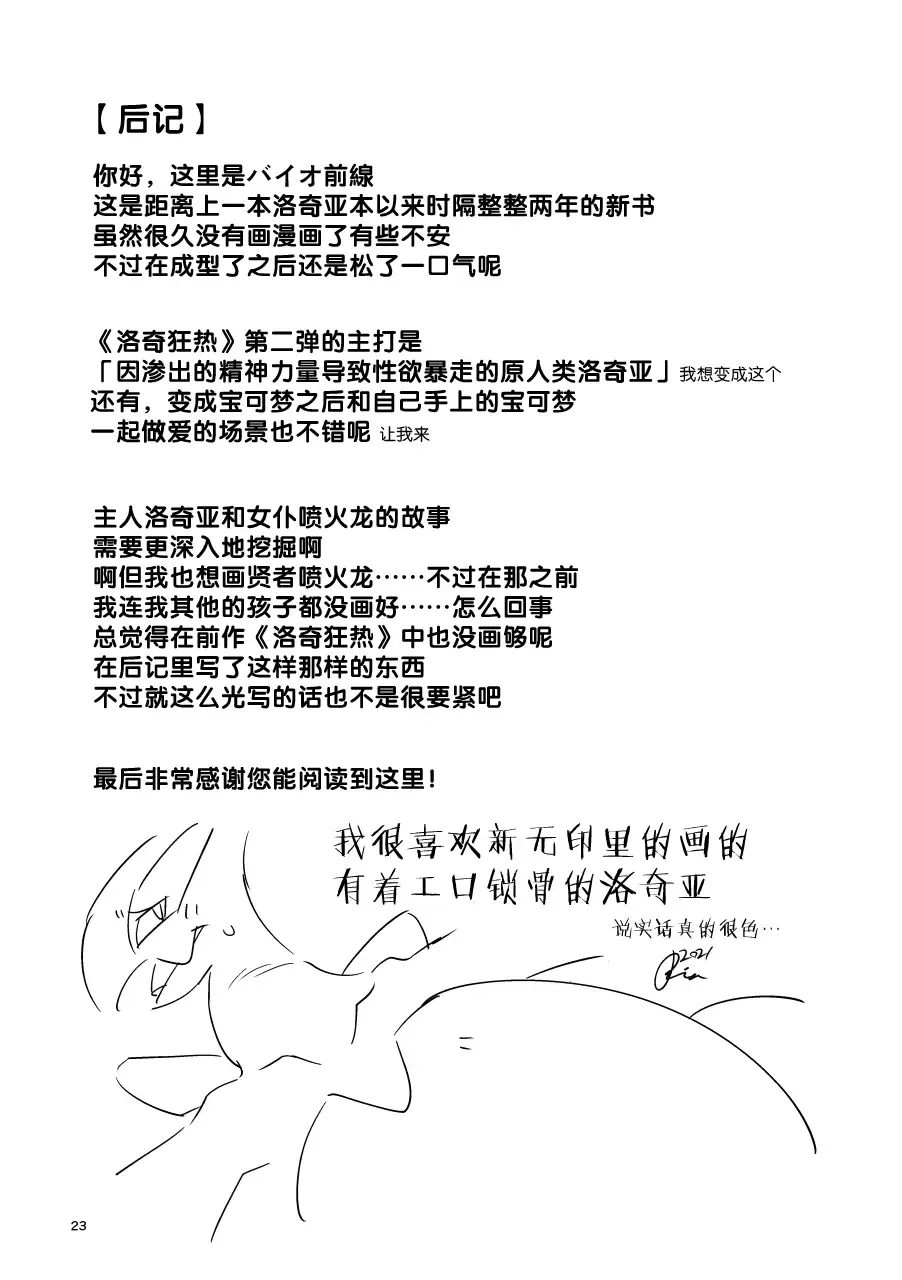 【后记】
你好，这里是バイオ前線
这是距离上一本洛奇亚本以来时隔整整两年的新书
虽然很久没有画漫画了有些不安
不过在成型了之后还是松了一口气呢
《洛奇狂热》第二弹的主打是
「因渗出的精神力量导致性欲暴走的原人类洛奇亚」我想变成这个
还有，变成宝可梦之后和自己手上的宝可梦
一起做爱的场景也不错呢 让我来
主人洛奇亚和女仆喷火龙的故事
需要更深入地挖掘啊
啊但我也想画贤者喷火龙……不过在那之前
我连我其他的孩子都没画好……怎么回事
总觉得在前作《洛奇狂热》中也没画够呢
在后记里写了这样那样的东西
不过就这么光写的话也不是很要紧吧
最后非常感谢您能阅读到这里！
我很喜欢新无印里的画的
有着工口锁骨的洛奇亚
说实话真的很色…
2021
23